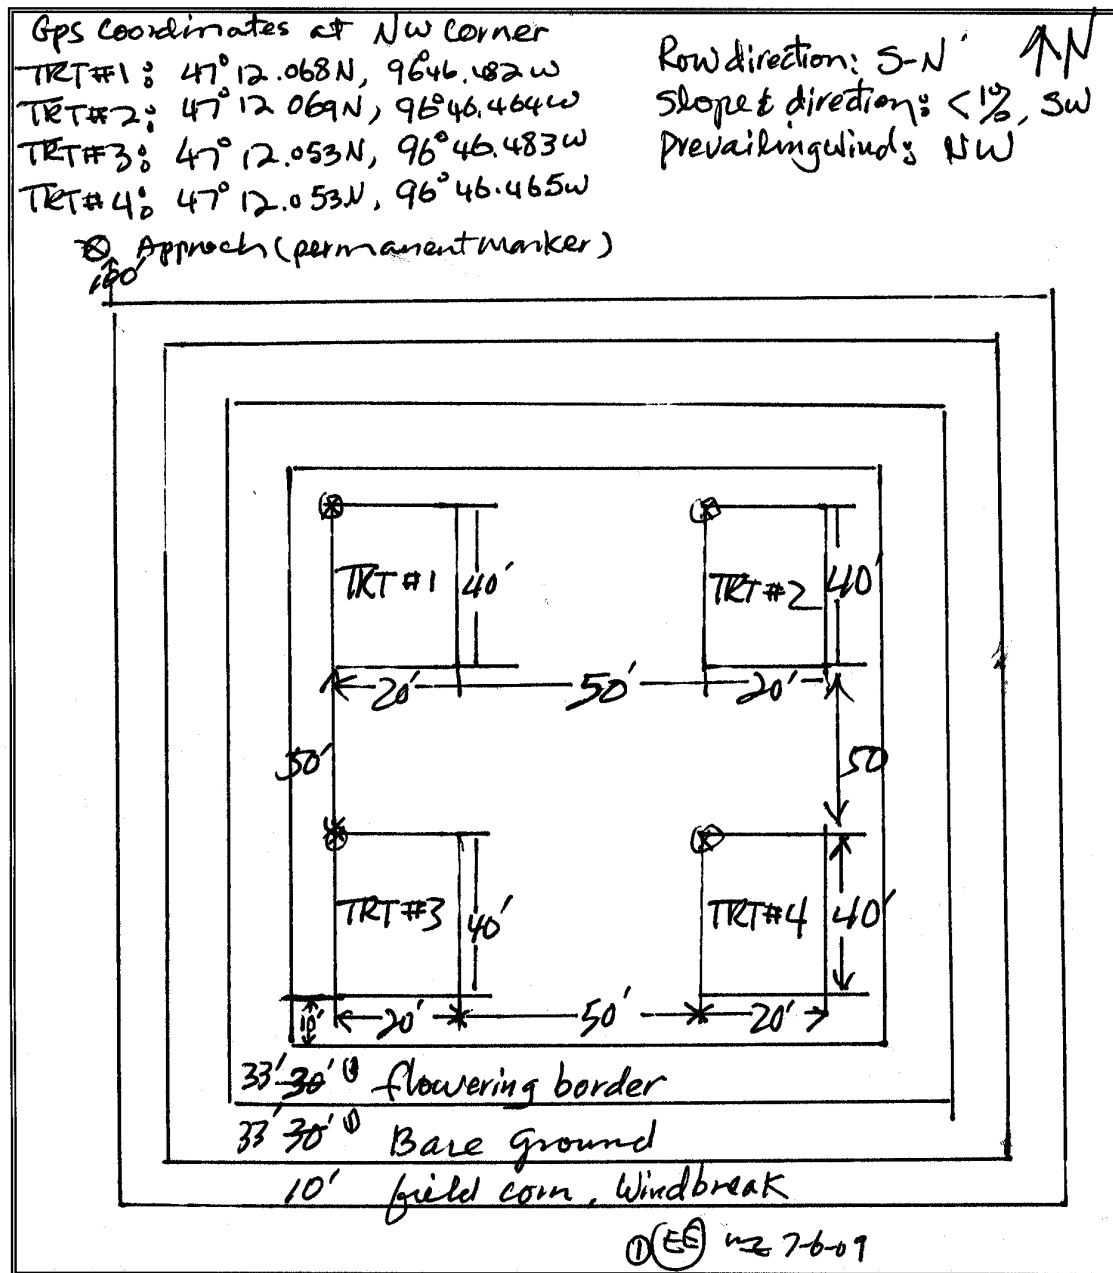 Gps Coordinates at NW Corner
TRT#1: 47° 12.068N, 96°46.482W
TRT#2: 47° 12 069N, 96°46.464W
TRT#3: 47° 12.053N, 96° 46.483W
TRT#4: 47° 12.053N, 96° 46.465W
Row direction: S-N
N
Slope & direction: <1%, SW
Prevailing wind: NW
Approch (permanent marker)
100'
TRT #1 40'
TRT #2 40'
20' 50' 20'
50' 50
TRT #3 40'
TRT #4 40'
10' 20' 50' 20'
33' 30' ① flowering border
33' 30' ① Bare Ground
10' field corn, Windbreak
① EE 7-6-09